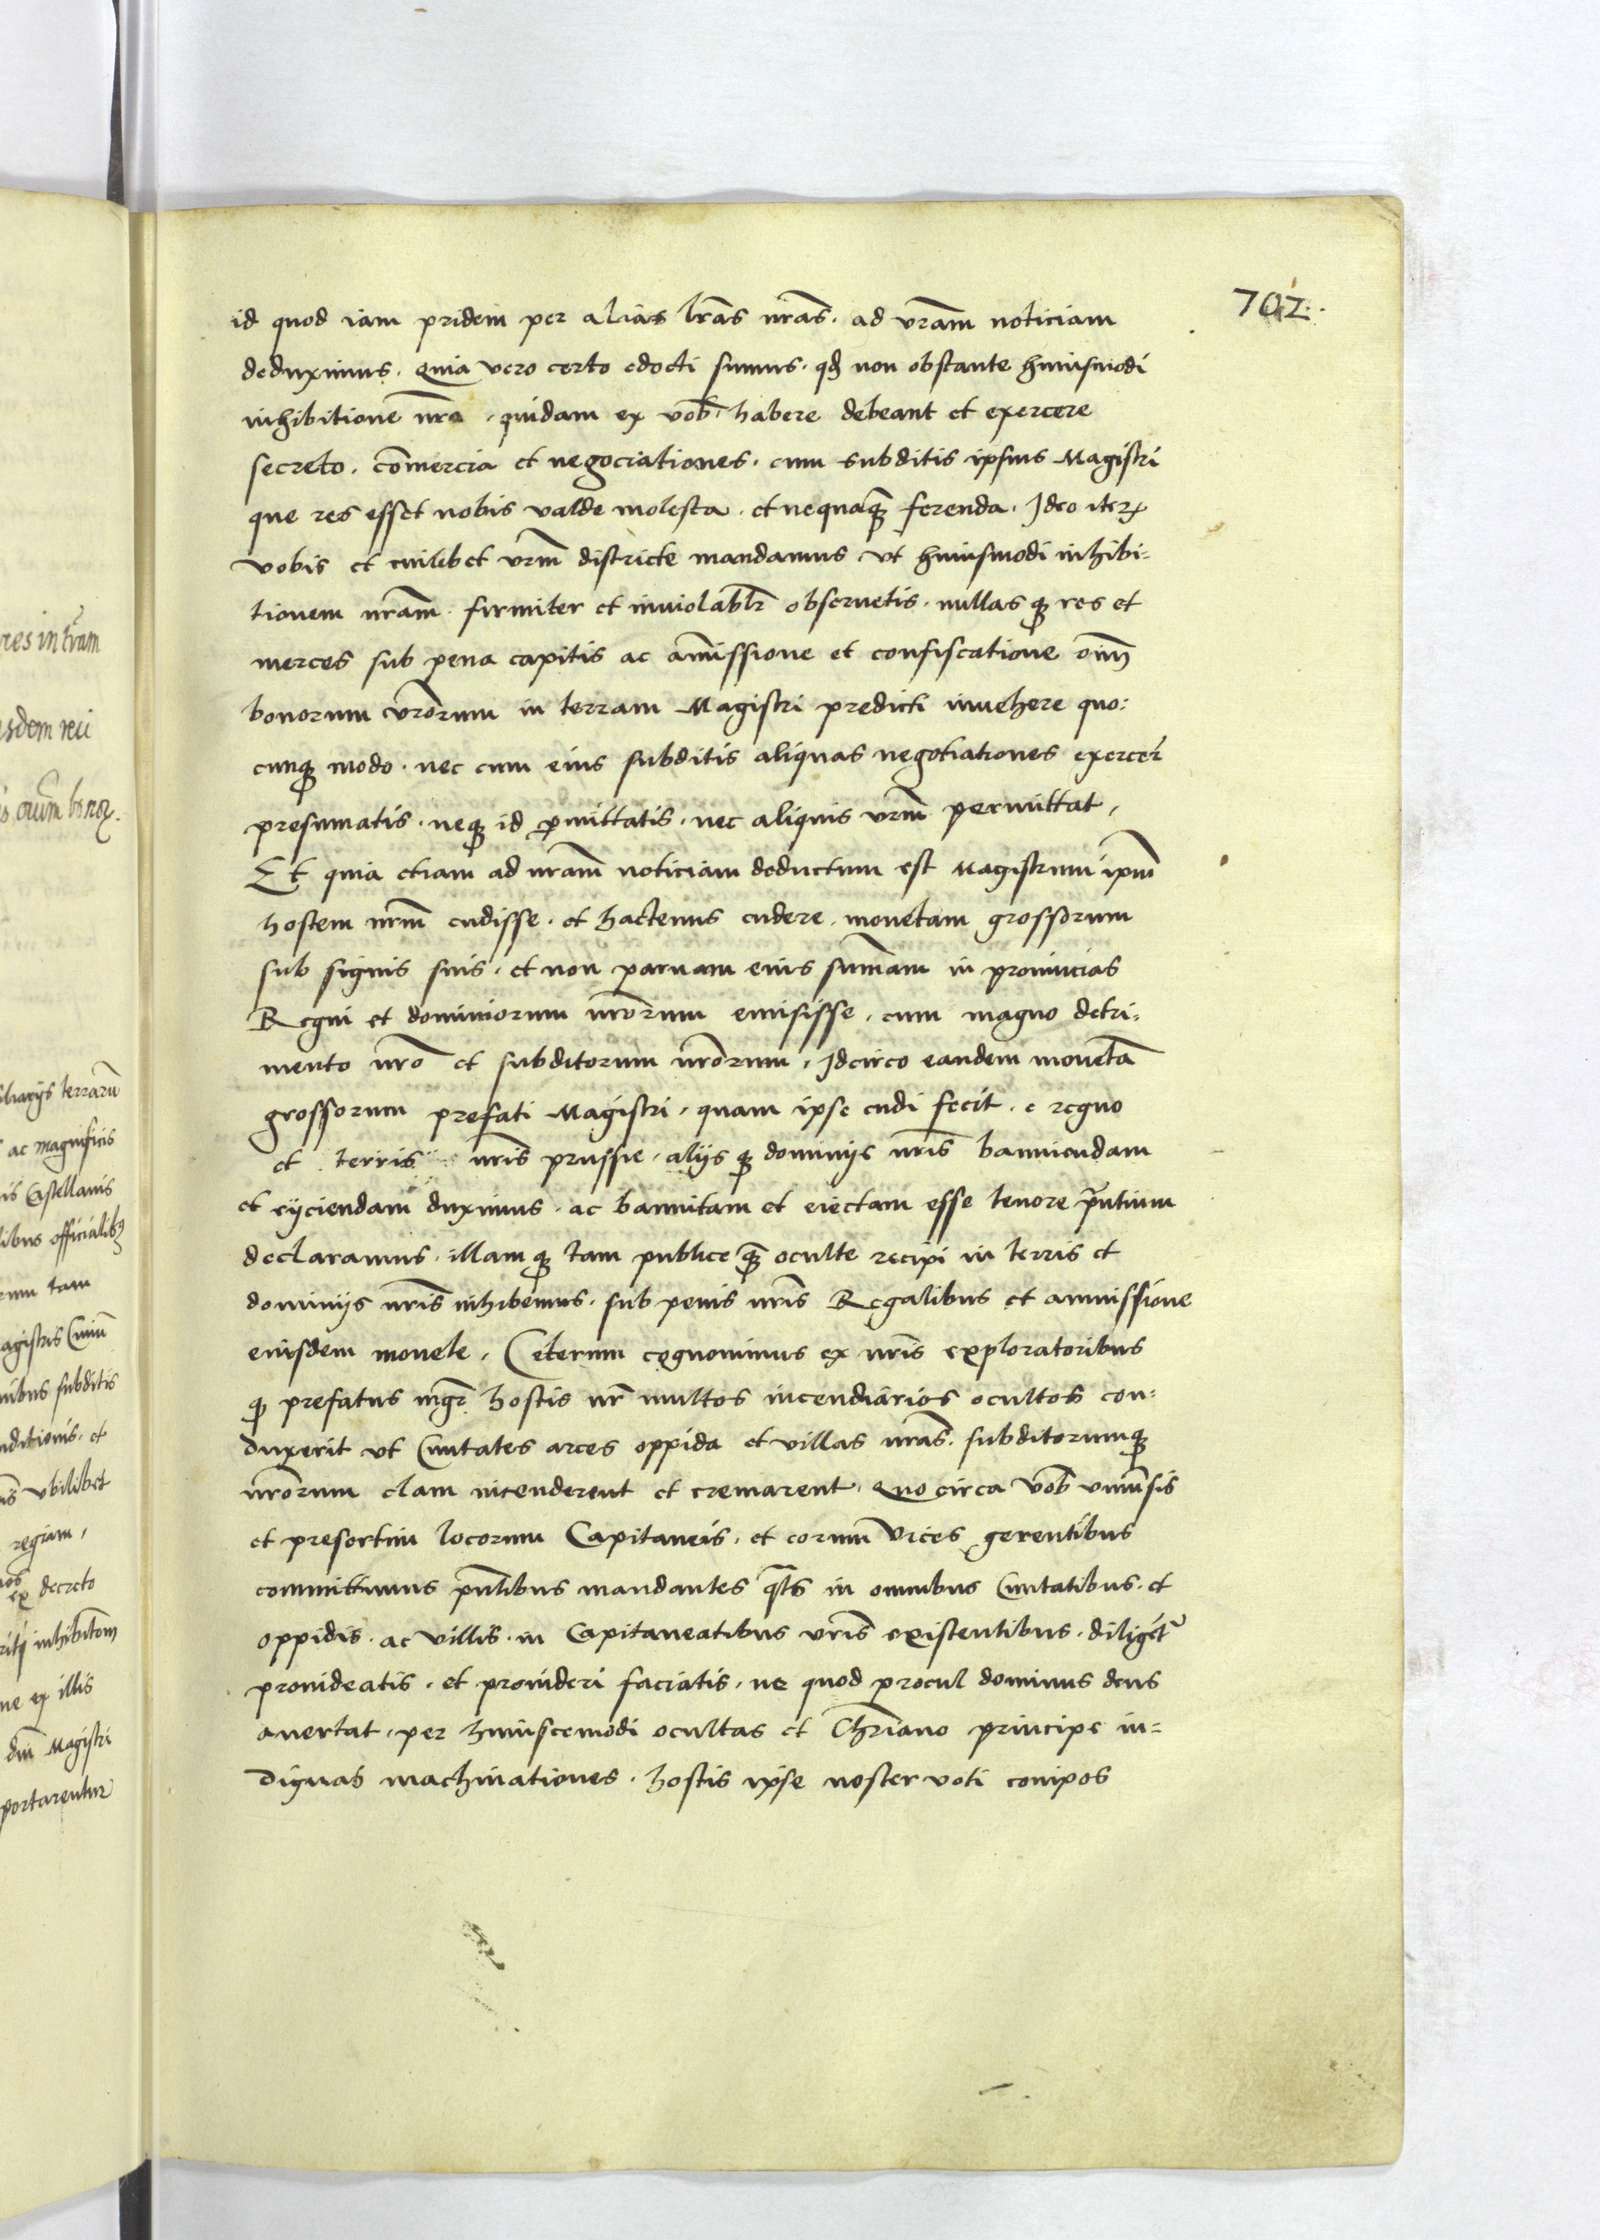 702.
id quod iam pridem per alias lr̃as nr̃as. ad vr̃am noticiam
deduximus. Quia vero certo edocti sumus. qđ non obstante huiusmodi
inhibitione nr̃a. quidam ex vob̃. habere debeant et exercere
secreto. com̃ercia et negociationes. cum subditis ipsius Magistri
que res esset nobis valde molesta. et nequaq̃ ferenda. Ideo iterꝝ
vobis et cuilibet vr̃m districte mandamus vt huiusmodi inhibi-
tionem nr̃am. firmiter et inuiolablr̃ obseruetis. nullas qꝫ res et
merces sub pena capitis ac am̃issione et confiscatione oĩm
bonorum vr̃orum in terram Magistri predicti inuehere quo-
cunqꝫ modo. nec cum eius subditis aliquas negotiationes exercer̃
presumatis. neqꝫ id ꝑmittatis. nec aliquis vr̃m permittat.
Et quia etiam ad nr̃am noticiam deductum est Magistrum ipm̃
hostem nr̃m cudisse. et hactenus cudere. monetam grossorum
sub signis suis. et non paruam eius sum̃am in prouincias
Regni et dominiorum nr̃orum emisisse. cum magno detri-
mento nr̃o et subditorum nr̃orum. Idcirco eandem monetã
grossorum prefati Magistri. quam ipse cudi fecit. e regno
et terris nr̃is prussie. alijs qꝫ dominijs nr̃is banniendam
et eijciendam duximus. ac bannitam et eiectam esse tenore pñtium
declaramus. illam qꝫ tam publice q̃ oculte recipi in terris et
dominijs nr̃is inhibemus. sub penis nr̃is Regalibus et amissione
eiusdem monete. Ceterum cognouimus ex nr̃is exploratoribus
qꝫ prefatus mgr̃. hostis nr̃ multos incendiarios ocultos con-
duxerit vt Ciuitates arces oppida et villas nr̃as. subditorumqꝫ
nr̃orum clam incenderent et cremarent. Quo circa vob̃ vniuersis
et presertim locorum Capitaneis. et eorum vices gerentibus
committimus pñtibus mandantes q̃ts in omnibus Ciuitatibus. et
oppidis. ac villis. in Capitaneatibus vr̃is existentibus. diligẽtr̃
prouideatis. et prouideri faciatis. ne quod procul dominus deus
auertat. per huiuscemodi ocultas et Chr̃iano principe in-
dignas machinationes. hostis ipse noster voti compos
res in tr̃am
esdem rei
is om̃m bonoꝝ.
iliarijs terrarũ
ac magnificis
is Castellanis
libus officialibꝫ
rum tam
agistris Ciuiũ
nibus subditis
nditionis. et
vbilibet
regiam.
ex decreto
inhibitom̃
ne ex illis
dñi Magistri
portarentur